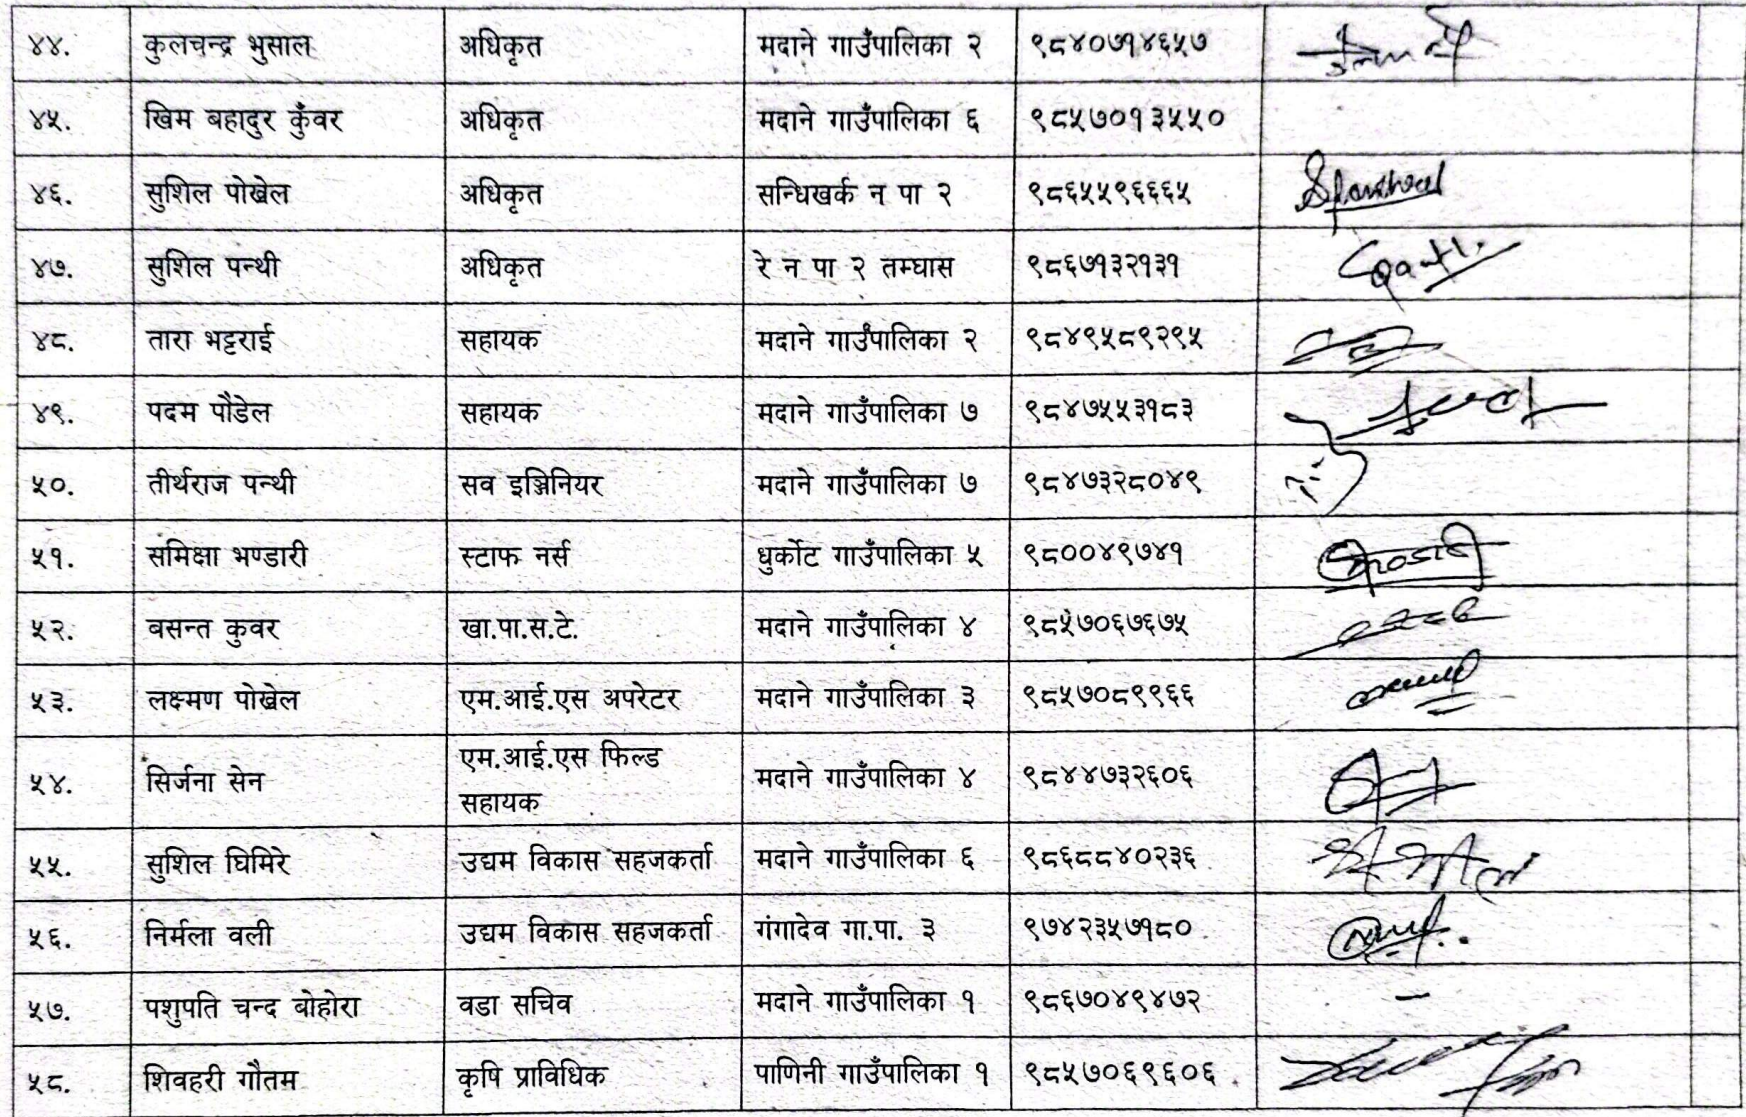 ४४. कुलचन्द्र भुसाल अधिकृत मदाने गाउँपालिका २ ९८४०७१४६५७
४५. खिम बहादुर कुँवर अधिकृत मदाने गाउँपालिका ६ ९८५७०१३५५०
४६. सुशिल पोखेल अधिकृत सन्धिखर्क न पा २ ९८६५५९६६६५
४७. सुशिल पन्थी अधिकृत रे न पा २ तम्घास ९८६७१३२१३१
४८. तारा भट्टराई सहायक मदाने गाउँपालिका २ ९८४९५८९२९५
४९. पदम पौडेल सहायक मदाने गाउँपालिका ७ ९८४७५५३१८३
५०. तीर्थराज पन्थी सव इञ्जिनियर मदाने गाउँपालिका ७ ९८४७३२८०४९
५१. समिक्षा भण्डारी स्टाफ नर्स धुर्कोट गाउँपालिका ५ ९८००४९७४१
५२. बसन्त कुवर खा.पा.स.टे. मदाने गाउँपालिका ४ ९८५७०६७६७५
५३. लक्ष्मण पोखेल एम.आई.एस अपरेटर मदाने गाउँपालिका ३ ९८५७०८९९६६
५४. सिर्जना सेन एम.आई.एस फिल्ड
सहायक मदाने गाउँपालिका ४ ९८४४७३२६०६
५५. सुशिल घिमिरे उद्यम विकास सहजकर्ता मदाने गाउँपालिका ६ ९८६८८४०२३६
५६. निर्मला वली उद्यम विकास सहजकर्ता गंगादेव गा.पा. ३ ९७४२३५७१८०
५७. पशुपति चन्द बोहोरा वडा सचिव मदाने गाउँपालिका १ ९८६७०४९४७२ –
५८. शिवहरी गौतम कृषि प्राविधिक पाणिनी गाउँपालिका १ ९८५७०६९६०६